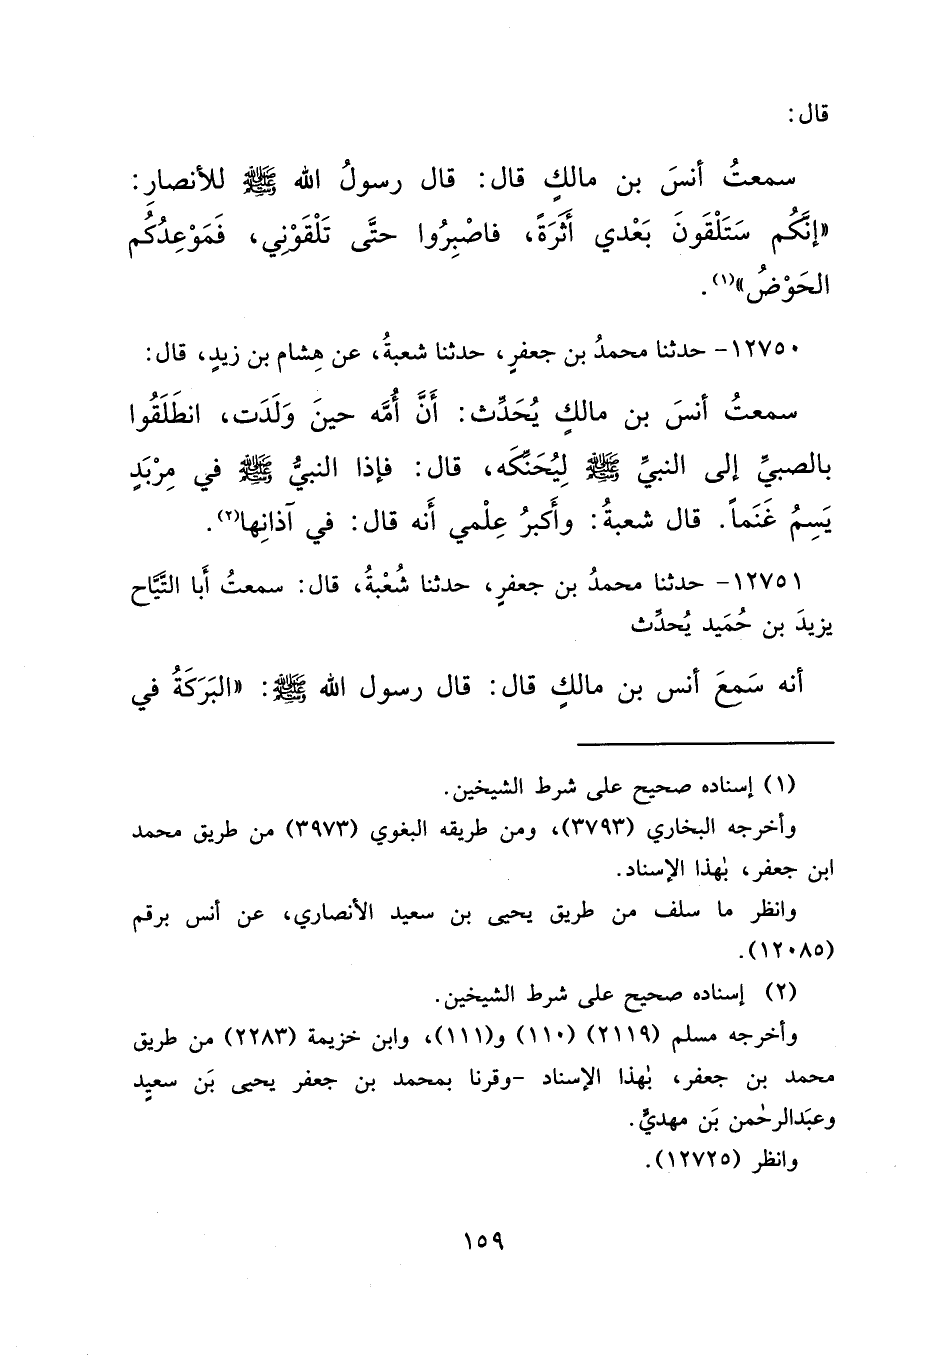 قال:
سمعتُ أنسَ بن مالكٍ قال: قال رسولُ الله ﷺ للأنصارِ:
«إنَّكُم سَتَلْقَونَ بَعْدي أَثَرَةً، فاصْبِرُوا حتَّى تَلْقَوْنِي، فَمَوْعِدُكُم
الحَوْضُ»(١).
١٢٧٥٠- حدثنا محمدُ بن جعفرٍ، حدثنا شعبةُ، عن هِشام بن زيدٍ، قال:
سمعتُ أنسَ بن مالكٍ يُحَدِّث: أَنَّ أُمَّه حينَ وَلَدَت، انطَلَقُوا
بالصبيِّ إلى النبيِّ ﷺ لِيُحَنِّكَه، قال: فإذا النبيُّ ﷺ في مِرْبَدٍ
يَسِمُ غَنَماً. قال شعبةُ: وأَكبرُ عِلْمي أَنه قال: في آذانِها(٢).
١٢٧٥١- حدثنا محمدُ بن جعفرٍ، حدثنا شُعْبةُ، قال: سمعتُ أَبا التَّيَّاح
يزيدَ بن حُمَيد يُحدِّث
أنه سَمِعَ أنس بن مالكٍ قال: قال رسول الله ﷺ: «البَرَكَةُ في
(١) إسناده صحيح على شرط الشيخين.
وأخرجه البخاري (٣٧٩٣)، ومن طريقه البغوي (٣٩٧٣) من طريق محمد
ابن جعفر، بهٰذا الإسناد.
وانظر ما سلف من طريق يحيى بن سعيد الأنصاري، عن أنس برقم
(١٢٠٨٥).
(٢) إسناده صحيح على شرط الشيخين.
وأخرجه مسلم (٢١١٩) (١١٠) و(١١١)، وابن خزيمة (٢٢٨٣) من طريق
محمد بن جعفر، بهٰذا الإسناد -وقرنا بمحمد بن جعفر يحيى بَن سعيدٍ
وعبَدالرحمٰن بَن مهديٍّ.
وانظر (١٢٧٢٥).
١٥٩